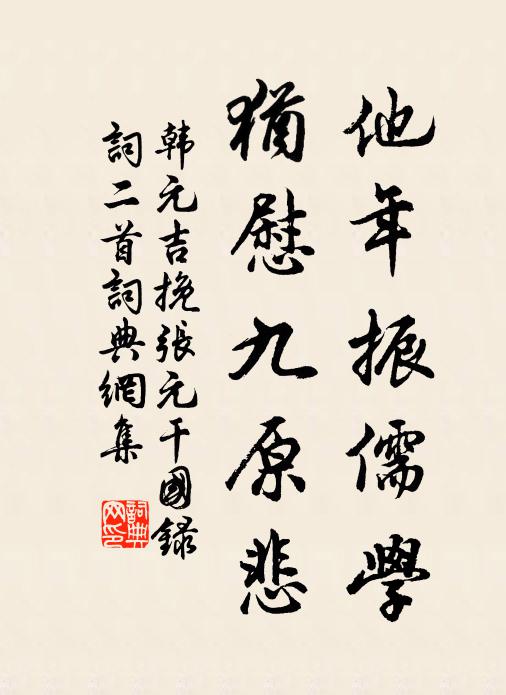 他年振儒學
猶慰九原悲
韩元吉挽張元干國録
詞二首詞典網集
詞典
网印